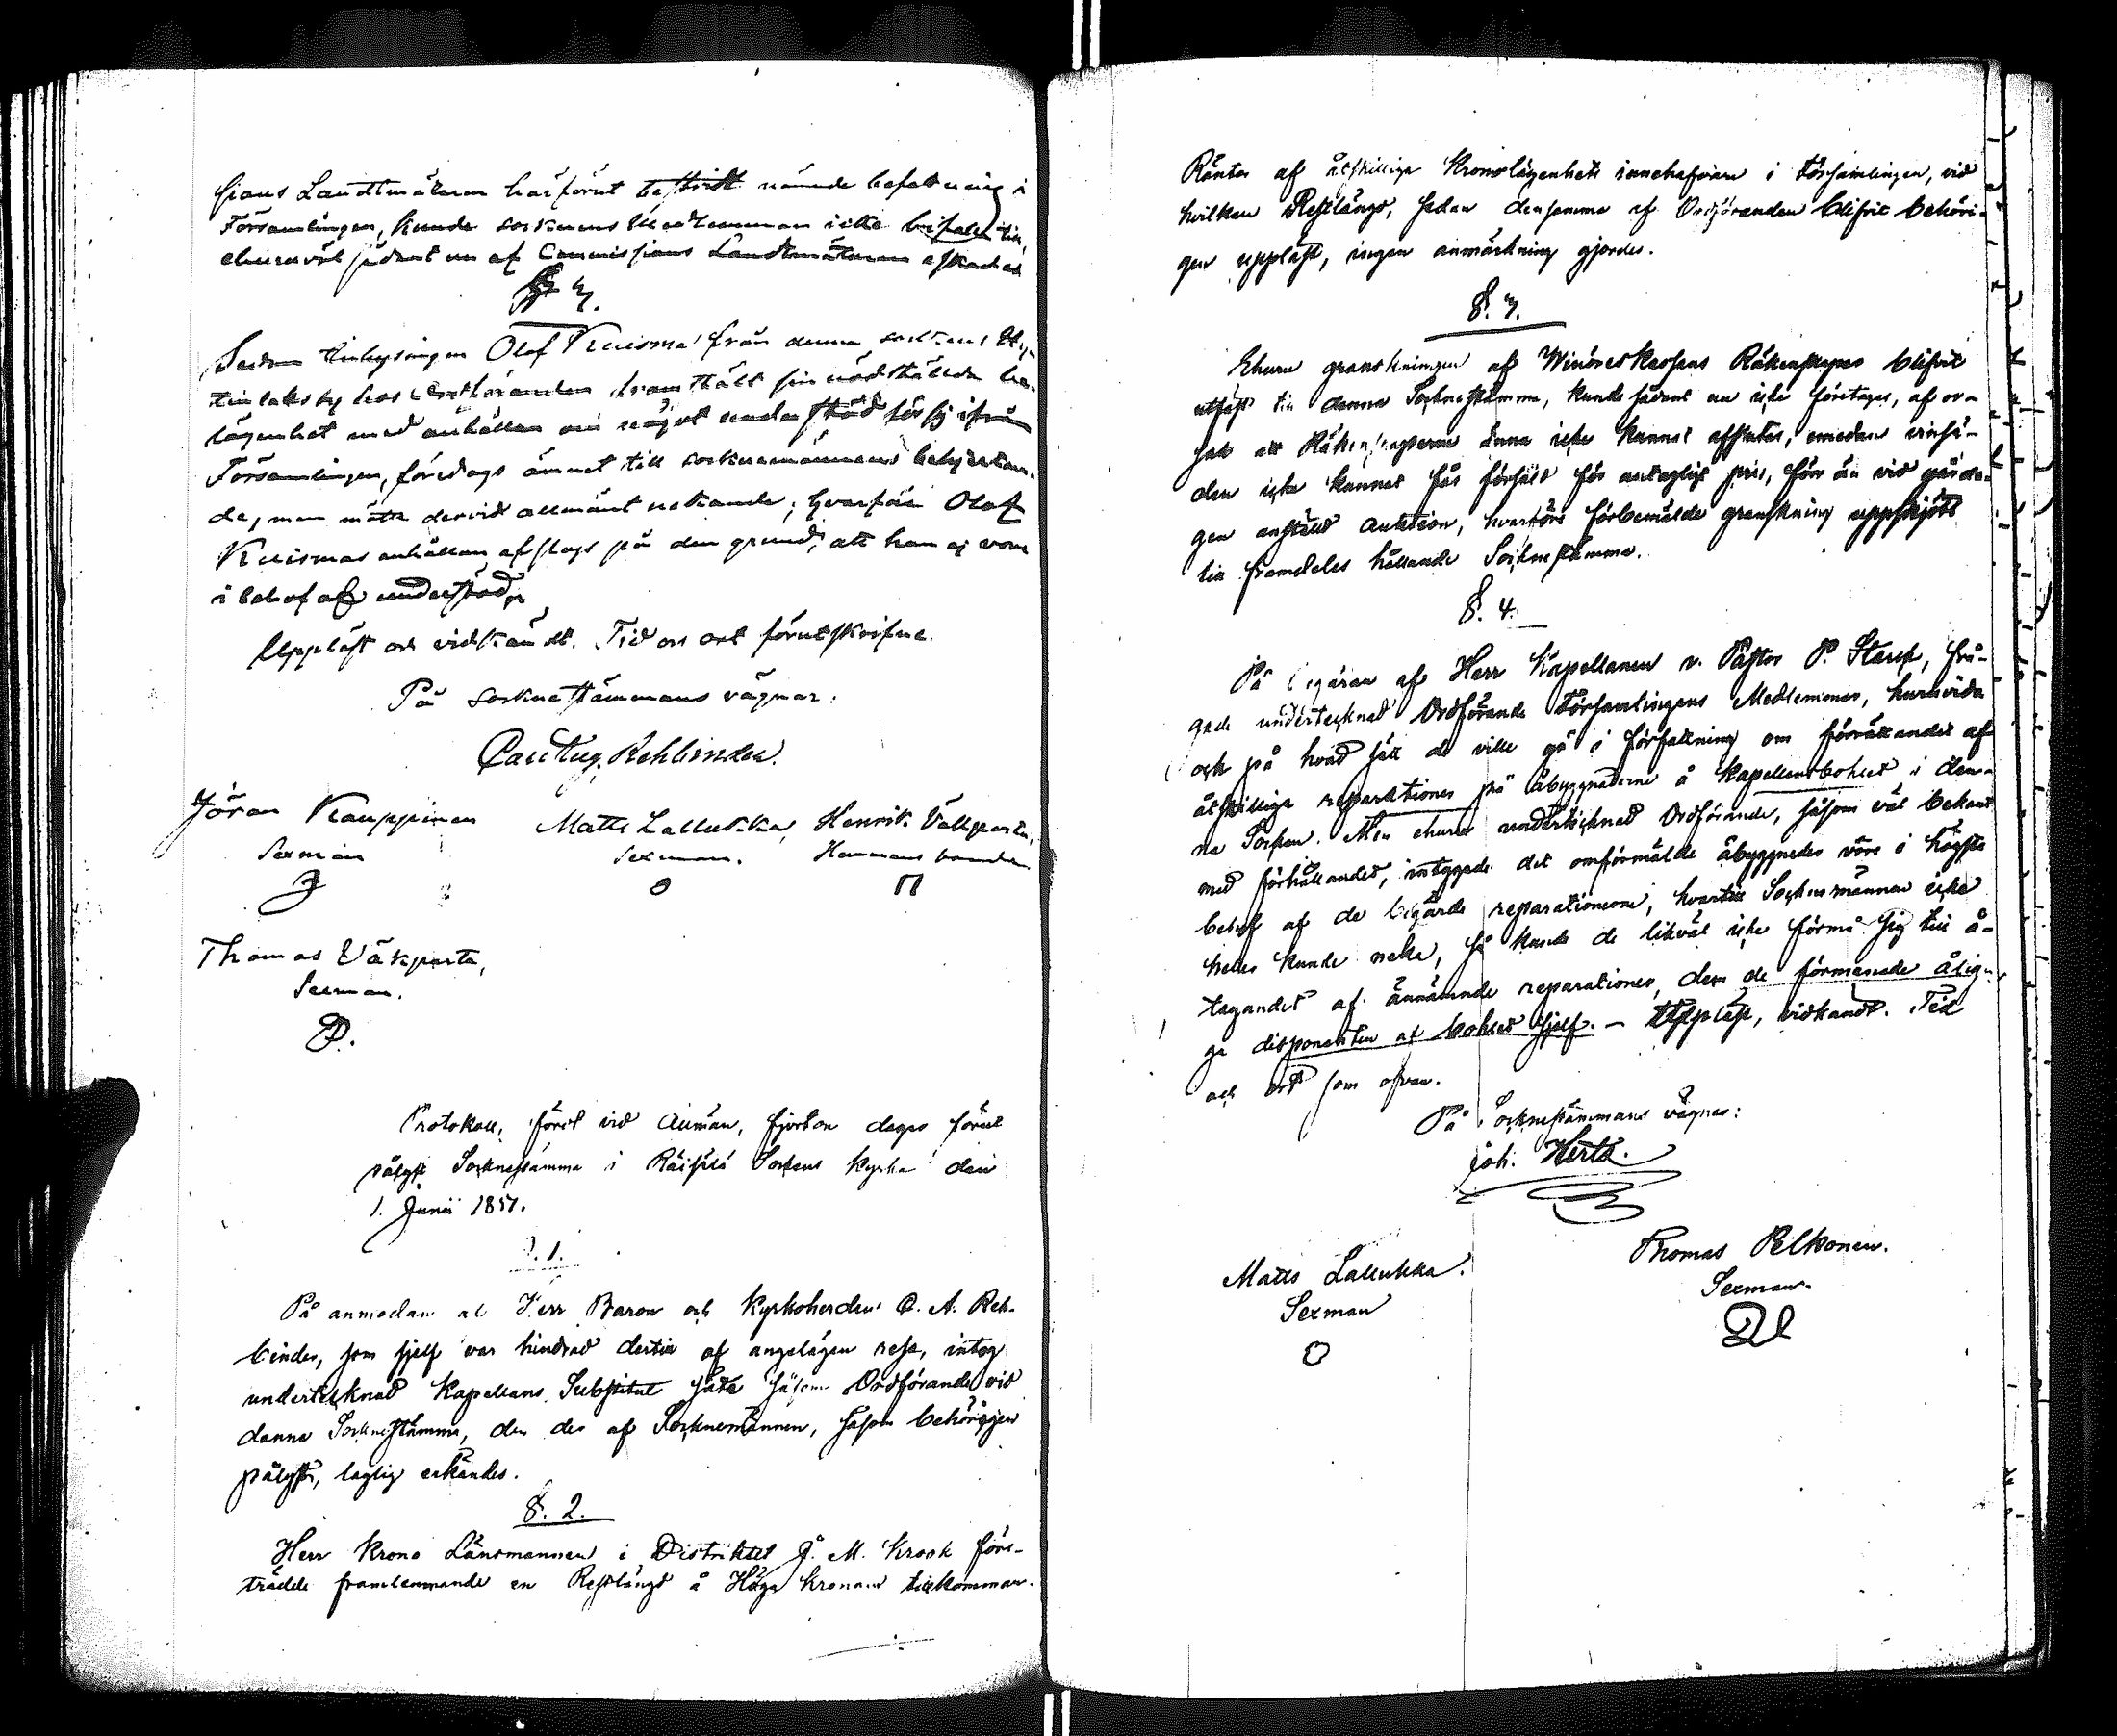 sions Landtmätaren härförut bestridt nämnde befattning i
Församlingen, kunde socknens Medlemmar icke bifalla till,
ehuruväl sådant nu af Commissions Landtmätaren äskades
§ 3.
Sedan Inhysingen Olof Kuisma från denna sockens
by hos Ordföranden framstält sin nödstälda be-
lägenhet med anhållan om något understöd för sig ifrån
Församlingen, föredrogs ämnet till socknemännens behjertan-
de, men mötte dervid allmänt nekande; hvarföre Olof
Kuismas anhållan afslogs på den grund, att han ej vore
i behof af understöd,
Uppläst och vidkändt. Tid och ort förutskrifne.
På sockenstämmans vägnar:
Carl Aug. Rehbinder.
Jöran Kauppinen Matts Lallukka, Henrik Väkiparta,
Sexman Sexman. Hemmans bonde
Thomas Väkiparta,
Sexman.
Protokoll, fördt vid allmän, fjorton dagar förut
pålyst Socknestämma i Räisälä Sockens Kyrka den
1. Junii 1851.
§. 1.
På anmodan af Herr Baron och Kyrkoherden C. A. Reh-
binder, som sjelf var hindrad dertill af angelägen resa, intog
undertecknad Kapellans Substitut säte såsom Ordförande vid
denna Socknestämma, den der af Socknemännen, såsom behörigen
pålyst, laglig erkändes.
§. 2.
Herr Krono Länsmannen i Distriktet J. M. Krook före-
trädde framlemnande en Restlängd å Höga Kronans tillkomman-
Räntor af åtskillige Kronolägenhets innehafvare i Församlingen, vid
hvilken Restlängd, sedan densamma af Ordföranden blifvit behöri-
gen uppläst, ingen anmärkning gjordes.
§. 3.
Ehuru granskningen af Räkenskaper blifvit
utsatt till denna Socknestämma, kunde sådant nu icke företagas, af or-
sak att Räkenskaperne ännu icke kunnat afslutas, emedan
den icke kunnat fås försåld för antagligt pris, förr än vid
gen anställd auktion, hvarföre förbemälde granskning uppskjöts
till framdeles hållande Socknestämma.
§. 4.
På begäran af Herr Kapellanen v. Pastor P. Starck, frå-
gade undertecknad Ordförande Församlingens Medlemmar, huruvida
och på hvad sätt de ville gå i författning om förrättandet af
åtskilliga reparationer på åbyggnaderne å Kapellansbohlet i den-
na Socken. Men ehuru undertecknad Ordförande, såsom väl bekant
med förhållandet, intygade det omförmälde åbyggnader vore i högsta
behof af de begärde reparationerne, hvartill Socknemännen icke
heller kunde neka, så kunde de likväl icke förmå sig till å-
tagandet af ännämnde reparationer, dem de förmenade ålig-
ga disponenten af bohlet sjelf. – Uppläst, vidkändt. Tid
och ort som ofvan.
På Socknestämmans vägnar:
Joh. Hertz.
Matts Lallukka.
Sexman
Thomas Pelkonen.
Sexman.